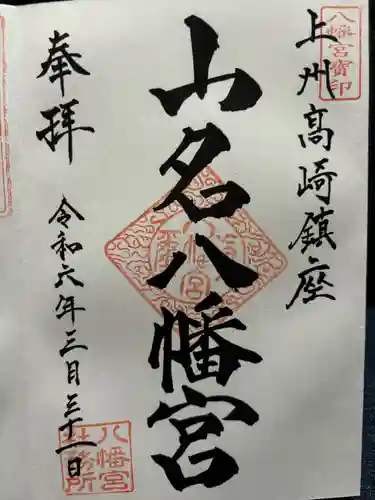 上州高崎鎮座
八幡宮寳印
山名八幡宮
奉拝
令和六年三月三十一日
八幡宮
社務所